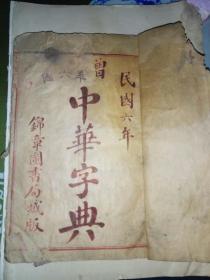 民國六年
曾
中華字典
錦章圖書局藏版